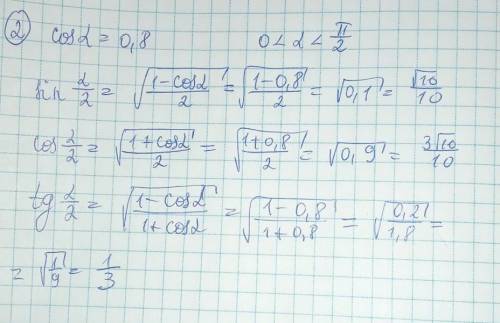 ② cos α = 0,8    0 < α < π/2
sin α/2 = √((1-cos α)/2) = √((1-0,8)/2) = √0,1 = √10/10
cos α/2 = √((1+cos α)/2) = √((1+0,8)/2) = √0,9 = 3√10/10
tg α/2 = √((1-cos α)/(1+cos α)) = √((1-0,8)/(1+0,8)) = √(0,2/1,8) =
= √(1/9) = 1/3